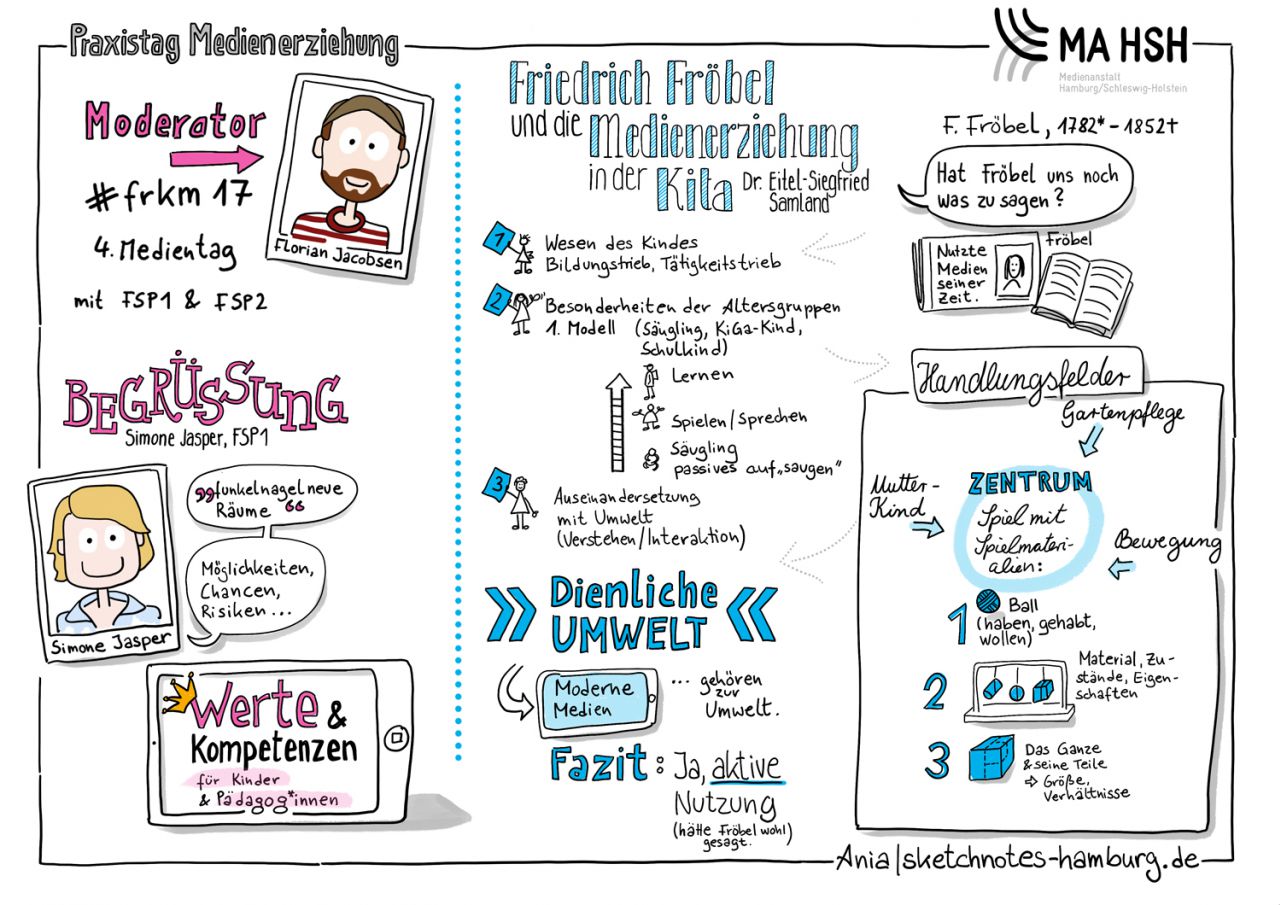 Praxistag Medienerziehung
MA HSH
Medienanstalt
Hamburg/Schleswig-Holstein
Moderator
#frkm 17
4. Medientag
mit FSP1 & FSP2
Florian Jacobsen
BEGRÜSSUNG
Simone Jasper, FSP1
„funkelnagelneue
Räume“
Möglichkeiten,
Chancen,
Risiken...
Simone Jasper
Werte &
Kompetenzen
für Kinder
& Pädagog*innen
Friedrich Fröbel
und die
Medienerziehung
in der
Kita
Dr. Eitel-Siegfried
Samland
1
Wesen des Kindes
Bildungstrieb, Tätigkeitstrieb
2
Besonderheiten der Altersgruppen
1. Modell (Säugling, KiGa-Kind,
Schulkind)
Lernen
Spielen/Sprechen
Säugling
passives auf„saugen“
3
Auseinandersetzung
mit Umwelt
(Verstehen/Interaktion)
Dienliche
UMWELT
Moderne
Medien
... gehören
zur
Umwelt.
Fazit: Ja, aktive
Nutzung
(hätte Fröbel wohl)
gesagt.
F. Fröbel, 1782* - 1852†
Hat Fröbel uns noch
was zu sagen?
Fröbel
Nutzte
Medien
seiner
Zeit.
Handlungsfelder
Gartenpflege
Mutter-
Kind
ZENTRUM
Spiel mit
Spielmateri-
alien:
Bewegung
1 Ball
(haben, gehabt,
wollen)
2
Material, Zu-
stände, Eigen-
schaften
3
Das Ganze
& seine Teile
⇨ Größe,
Verhältnisse
Ania|sketchnotes-hamburg.de